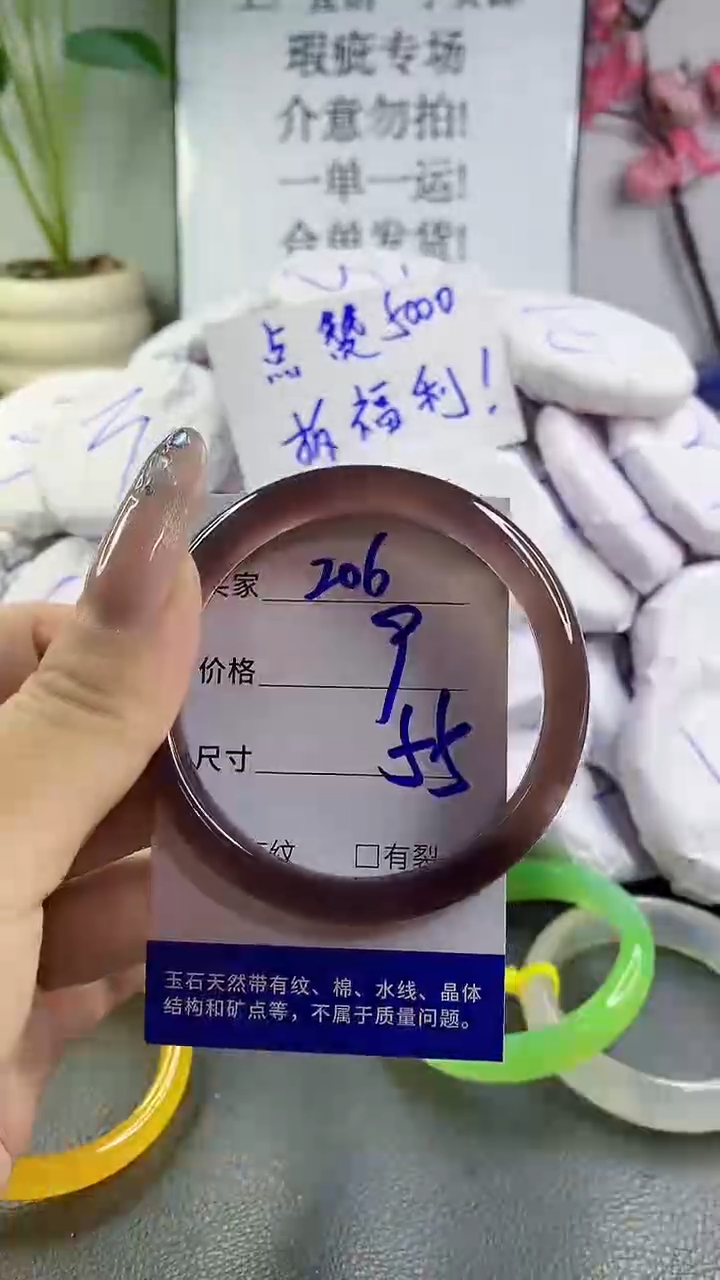 瑕疵专场
介意勿拍!
一单一运!
合单发货!
点赞5000
拆福利!
买家 206
价格 9
尺寸 55
纹 □有裂
玉石天然带有纹、棉、水线、晶体
结构和矿点等，不属于质量问题。